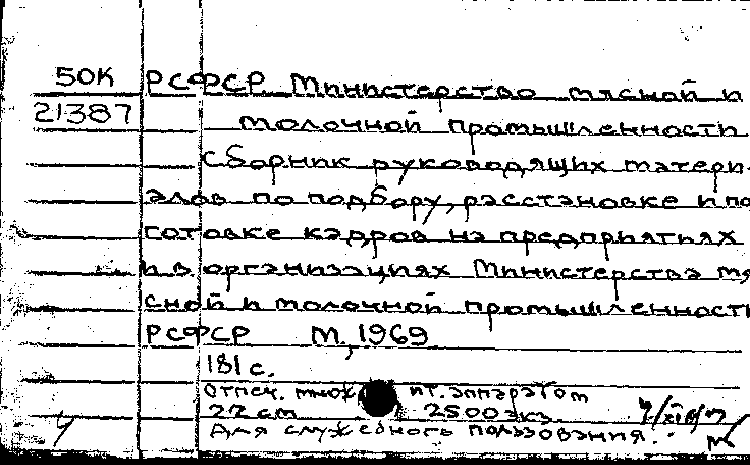 50К РСФСР Министерство мясной и
21387 молочной промышленности
Сборник руководящих матери-
алов по подбору, расстановке и по
готовке кадров на предприятиях
и в организациях Министерства мя
сной и молочной промышленност
РСФСР М., 1969
181 с.
Отпеч. множ ит. аппаратом
22 см 2500 экз.
Для служебного пользования.